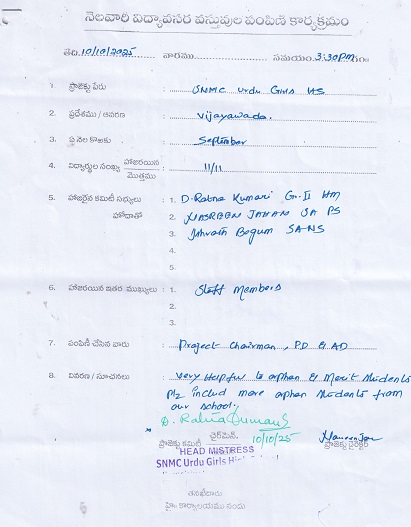 నెలవారి విద్యావసర వస్తువుల పంపిణి కార్యక్రమం
తేది. 10/10/2025 వారము సమయం. 3:30PM గం॥
1. ప్రాజెక్టు పేరు : SNMC Urdu Girls HS
2. ప్రదేశము / ఆవరణ : Vijayawada.
3. ఏ నెల కొఱకు : September
4. విద్యార్థుల సంఖ్య హాజరయిన మొత్తము : 11/11
5. హాజరైన కమిటీ సభ్యులు : 1. D. Ratna Kumari Gr.II HM
హోదాతో 2. NASREEN JAHAN SA PS
3. Begum SA-NS
4.
5.
6. హాజరయిన ఇతర ముఖ్యులు : 1. Staff Members
2.
3.
7. పంపిణీ చేసిన వారు : Project Chairman, PD & AD
8. వివరణ / సూచనలు : Very Helpful to orphan & Merit Students
Plz includ more orphan students from
our school.
D. Ratna Kumari
ప్రాజెక్టు కమిటీ చైర్‌మెన్. 10/10/25 ప్రాజెక్టు డైరెక్టర్
HEAD MISTRESS
SNMC Urdu Girls High